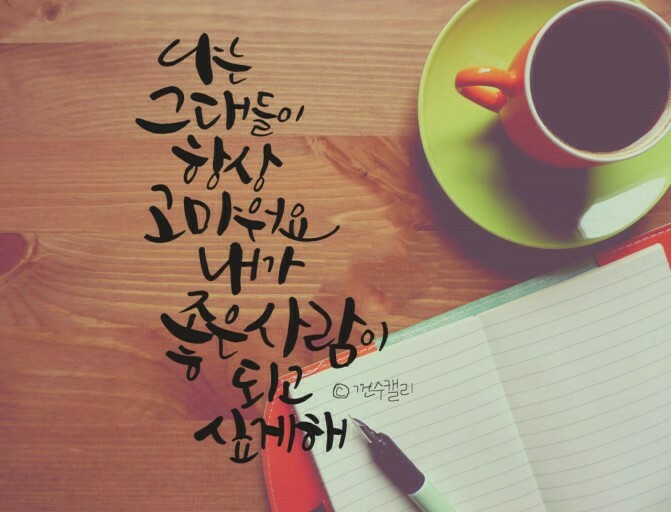 나는
그대들이
항상
고마워요
내가
좋은사람이
되고
싶게해
© 껀수캘리